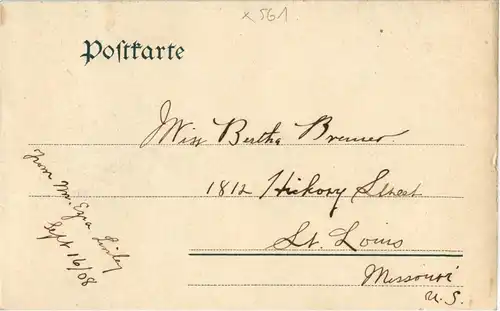 x 561
Postkarte
Miss Bertha Bremer.
1812 Hickory Street
St. Louis
Missouri
U. S.
from Mr. Ezra Linley
Sept 16/08